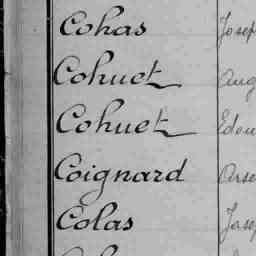 Cohas Josep
Cohuet Aug
Cohuet Edou
Coignard Arse
Colas Josep